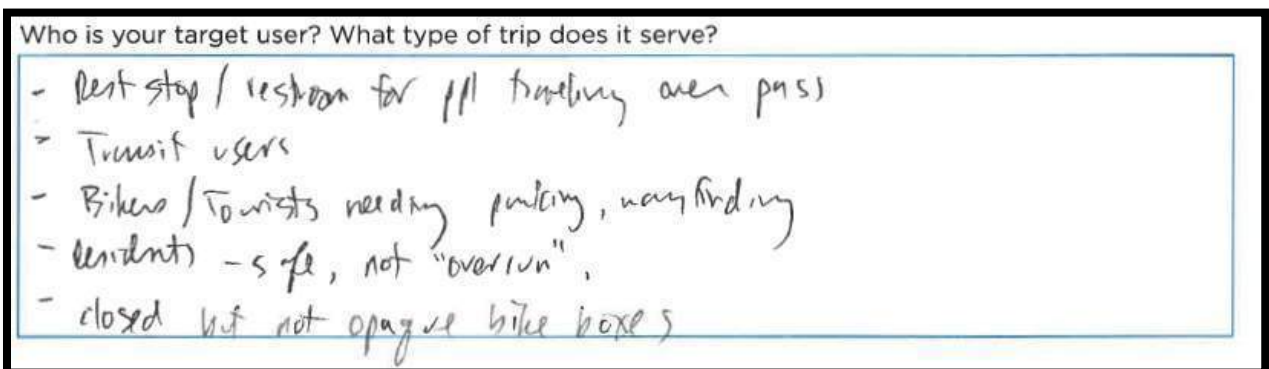 Who is your target user? What type of trip does it serve?
- Rest stop / restroom for ppl traveling over pass
- Transit users
- Bikers / Tourists needing parking, wayfinding
- Residents - safe, not "overrun".
- closed but not opaque bike boxes